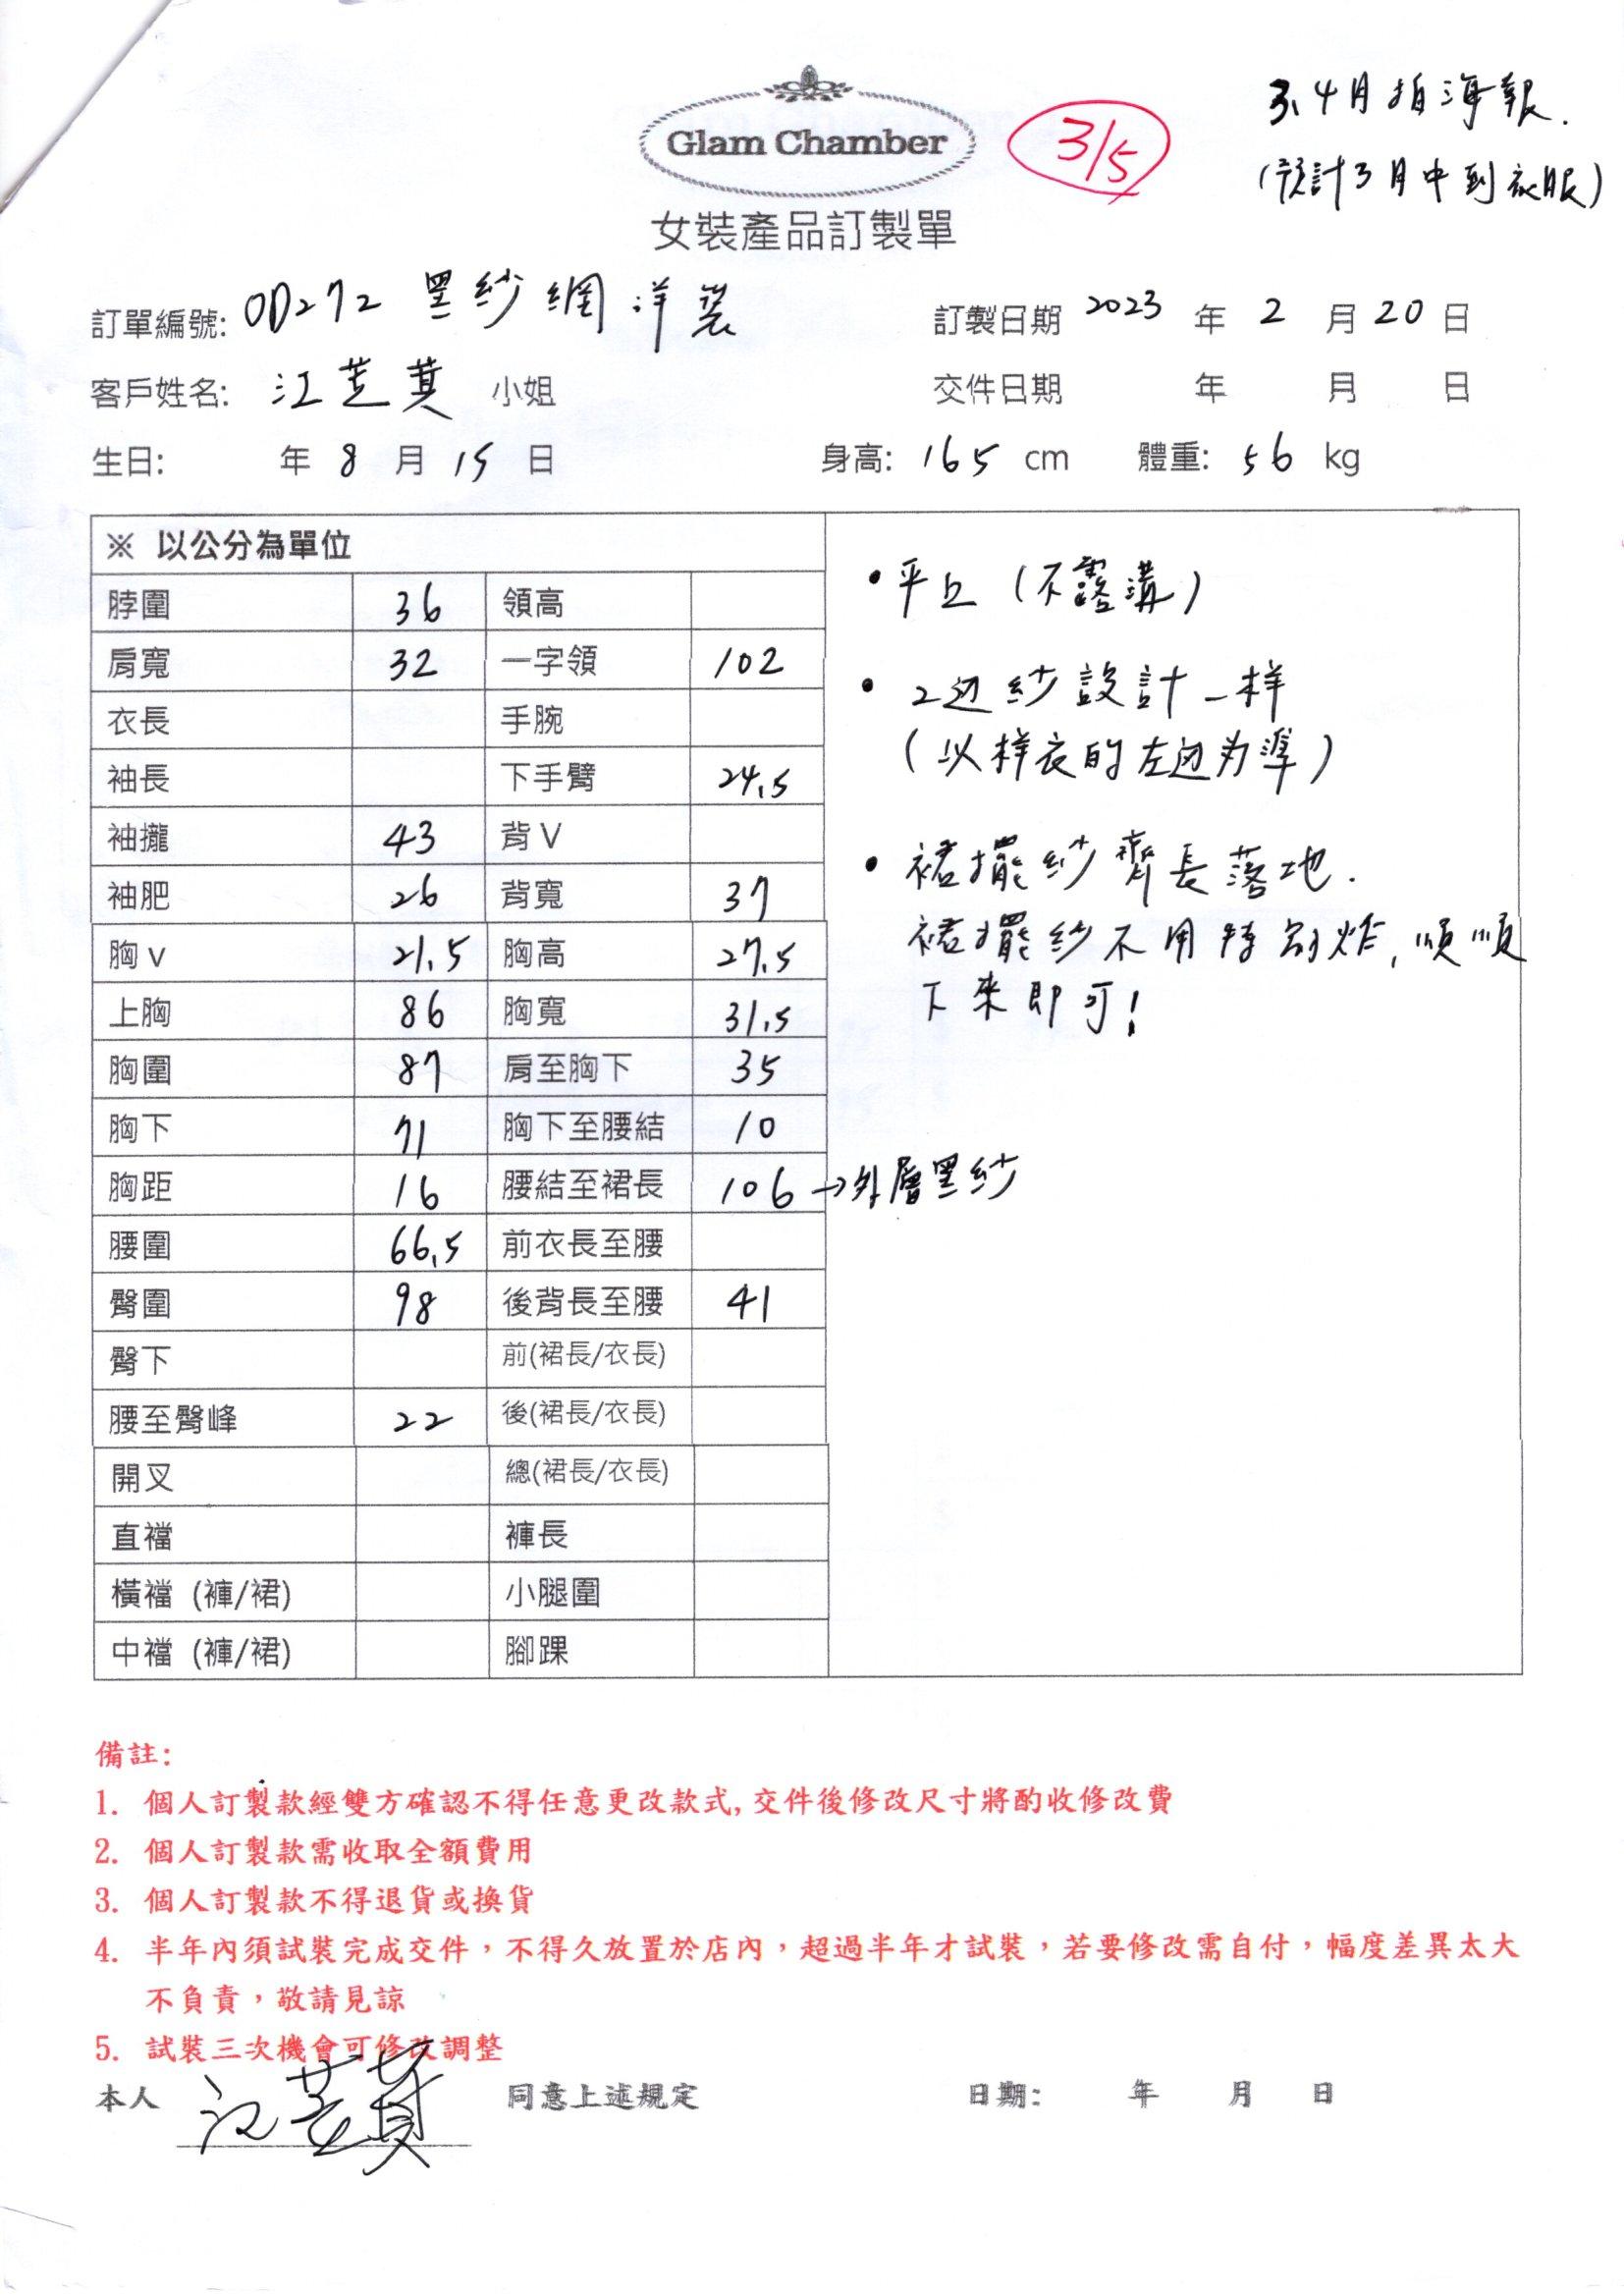 Glam Chamber
3/5
3、4月拍海報.
(預計3月中到衣服)
女裝產品訂製單
訂單編號: OD272 黑紗網洋裝
訂製日期 2023 年 2 月 20 日
客戶姓名: 江芝萁 小姐
交件日期 年 月 日
生日: 年 8 月 15 日
身高: 165 cm 體重: 56 kg
※ 以公分為單位
脖圍 36 領高
肩寬 32 一字領 102
衣長 手腕
袖長 下手臂 24.5
袖攏 43 背V
袖肥 26 背寬 37
胸v 21.5 胸高 27.5
上胸 86 胸寬 31.5
胸圍 87 肩至胸下 35
胸下 71 胸下至腰結 10
胸距 16 腰結至裙長 106 →外層黑紗
腰圍 66.5 前衣長至腰
臀圍 98 後背長至腰 41
臀下 前(裙長/衣長)
腰至臀峰 22 後(裙長/衣長)
開叉 總(裙長/衣長)
直襠 褲長
橫襠 (褲/裙) 小腿圍
中襠 (褲/裙) 腳踝
• 平口 (不露溝)
• 2边紗設計一样
(以样衣的左边为準)
• 裙擺紗齊長落地.
裙擺紗不用特別炸, 順順
下來即可!
備註:
1. 個人訂製款經雙方確認不得任意更改款式, 交件後修改尺寸將酌收修改費
2. 個人訂製款需收取全額費用
3. 個人訂製款不得退貨或換貨
4. 半年內須試裝完成交件，不得久放置於店內，超過半年才試裝，若要修改需自付，幅度差異太大
不負責，敬請見諒
5. 試裝三次機會可修改調整
本人 江 同意上述規定 日期: 年 月 日